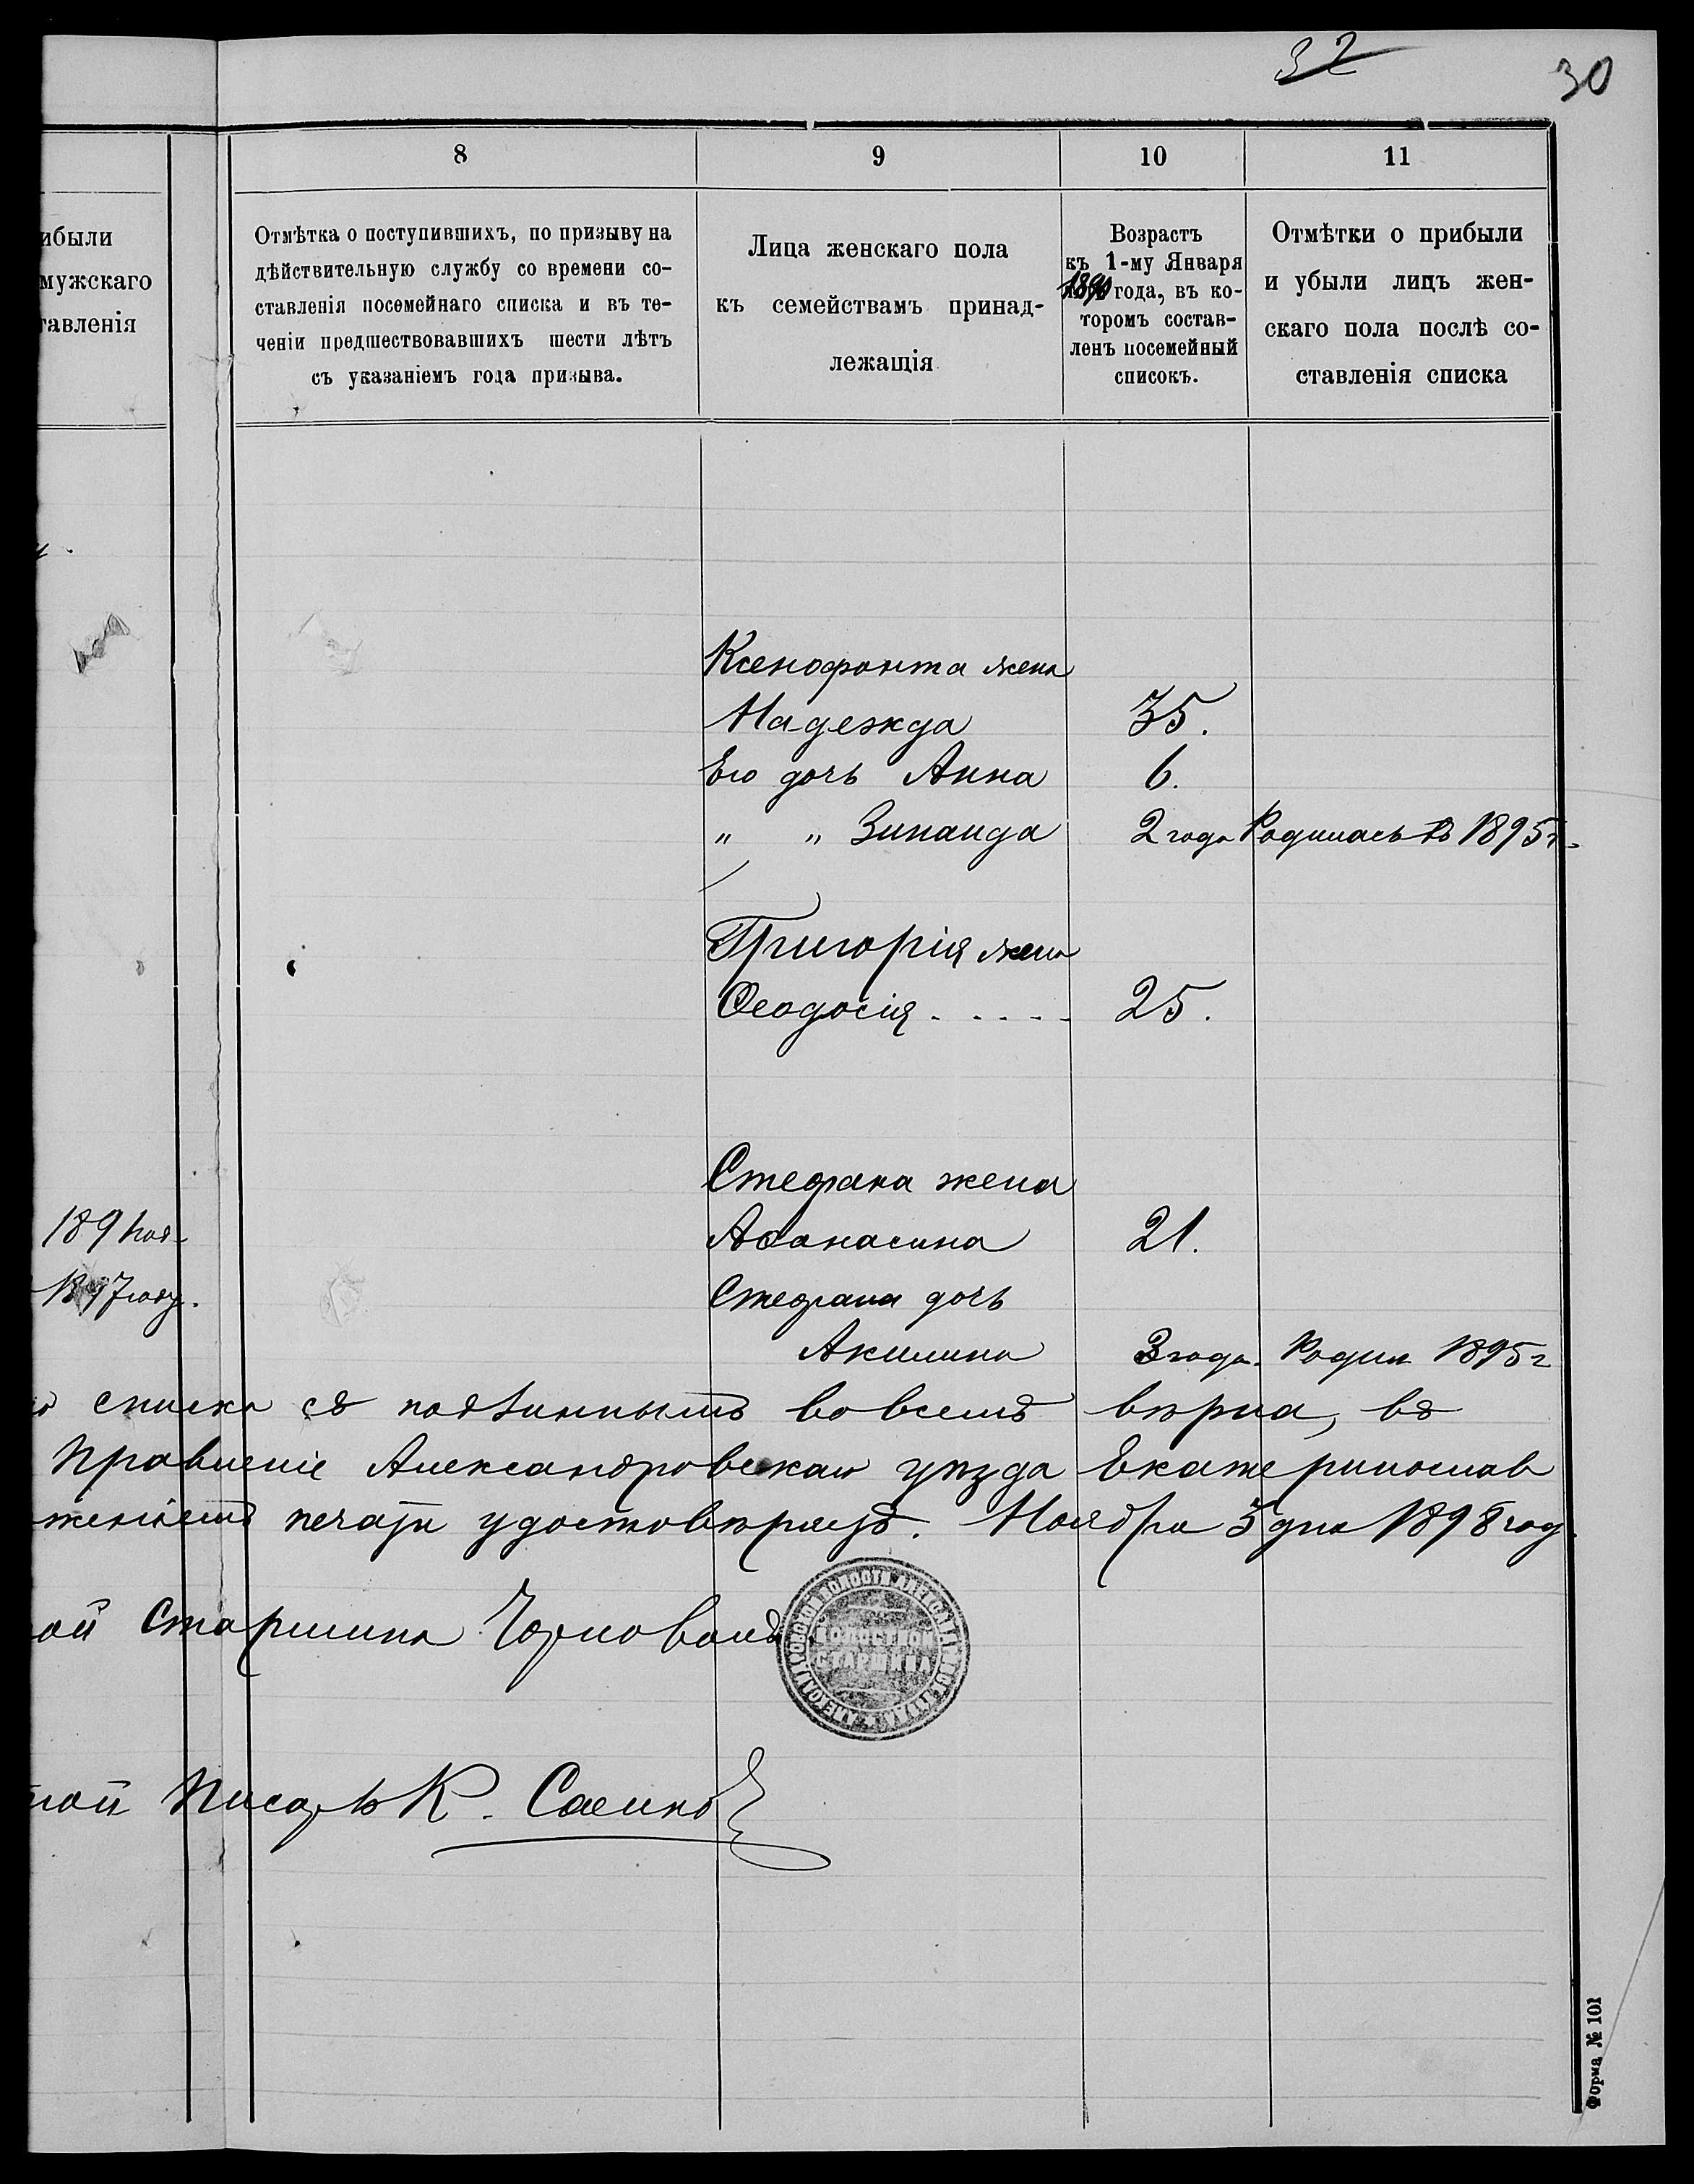 32
30
8
9
10
11
ибыли
мужскаго
тавленія
Отмѣтка о поступившихъ, по призыву на
дѣйствительную службу со времени со-
ставленія посемейнаго списка и въ те-
ченіи предшествовавшихъ шести лѣтъ
съ указаніемъ года призыва.
Лица женскаго пола
къ семействамъ принад-
лежащія
Возрастъ
къ 1-му Января
1890 года, въ ко-
торомъ состав-
ленъ посемейный
списокъ.
Отмѣтки о прибыли
и убыли лицъ жен-
скаго пола послѣ со-
ставленія списка
Ксенофонта жена
Надежда 35.
Его дочь Анна 6.
" " Зинаида 2 года Родилась въ 1895 г.
Григорія жена
Ѳеодосія . . . . . 25.
Стефана жена
189
Аѳанасина 21.
1897 году.
Стефана дочь
Акилина 3 года. Родил 1895 г
списка съ подлиннымъ во всемъ вѣрна, въ
Правленіе Александровскаго уѣзда Екатеринослав
женіемъ печати удостовѣряетъ. Ноября 5 дня 1898 год.
ой Старшина
ВОЛОСТНОЙ
СТАРШИНА
ной Писарь К. Саенко
Форма № 101